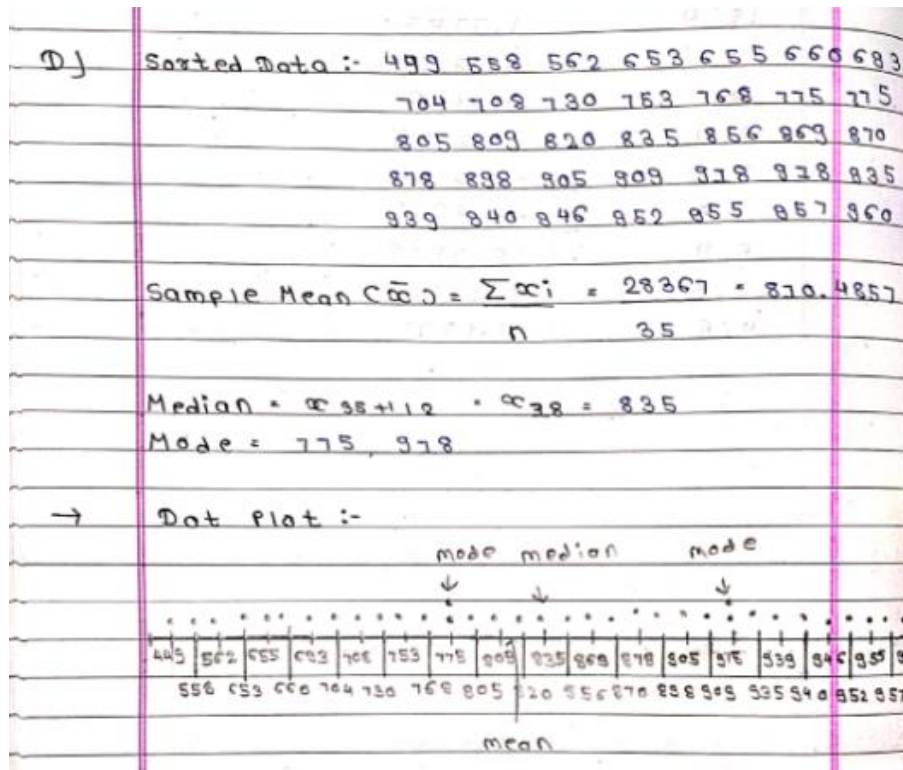 D) Sorted Data :- 499 558 562 653 655 660 683
704 708 730 753 768 775 775
805 809 820 835 856 869 870
878 898 905 909 918 918 935
939 940 946 952 955 957 960
Sample Mean (x̄) = Σxi = 28367 = 810.4857
n 35
Median = x 35+1/2 = x18 = 835
Mode = 775, 918
→ Dot Plot :-
mode median mode
449 562 655 693 708 753 775 809 835 869 878 905 918 939 946 955
558 653 660 704 730 768 805 820 856 870 898 909 935 940 952 957
mean